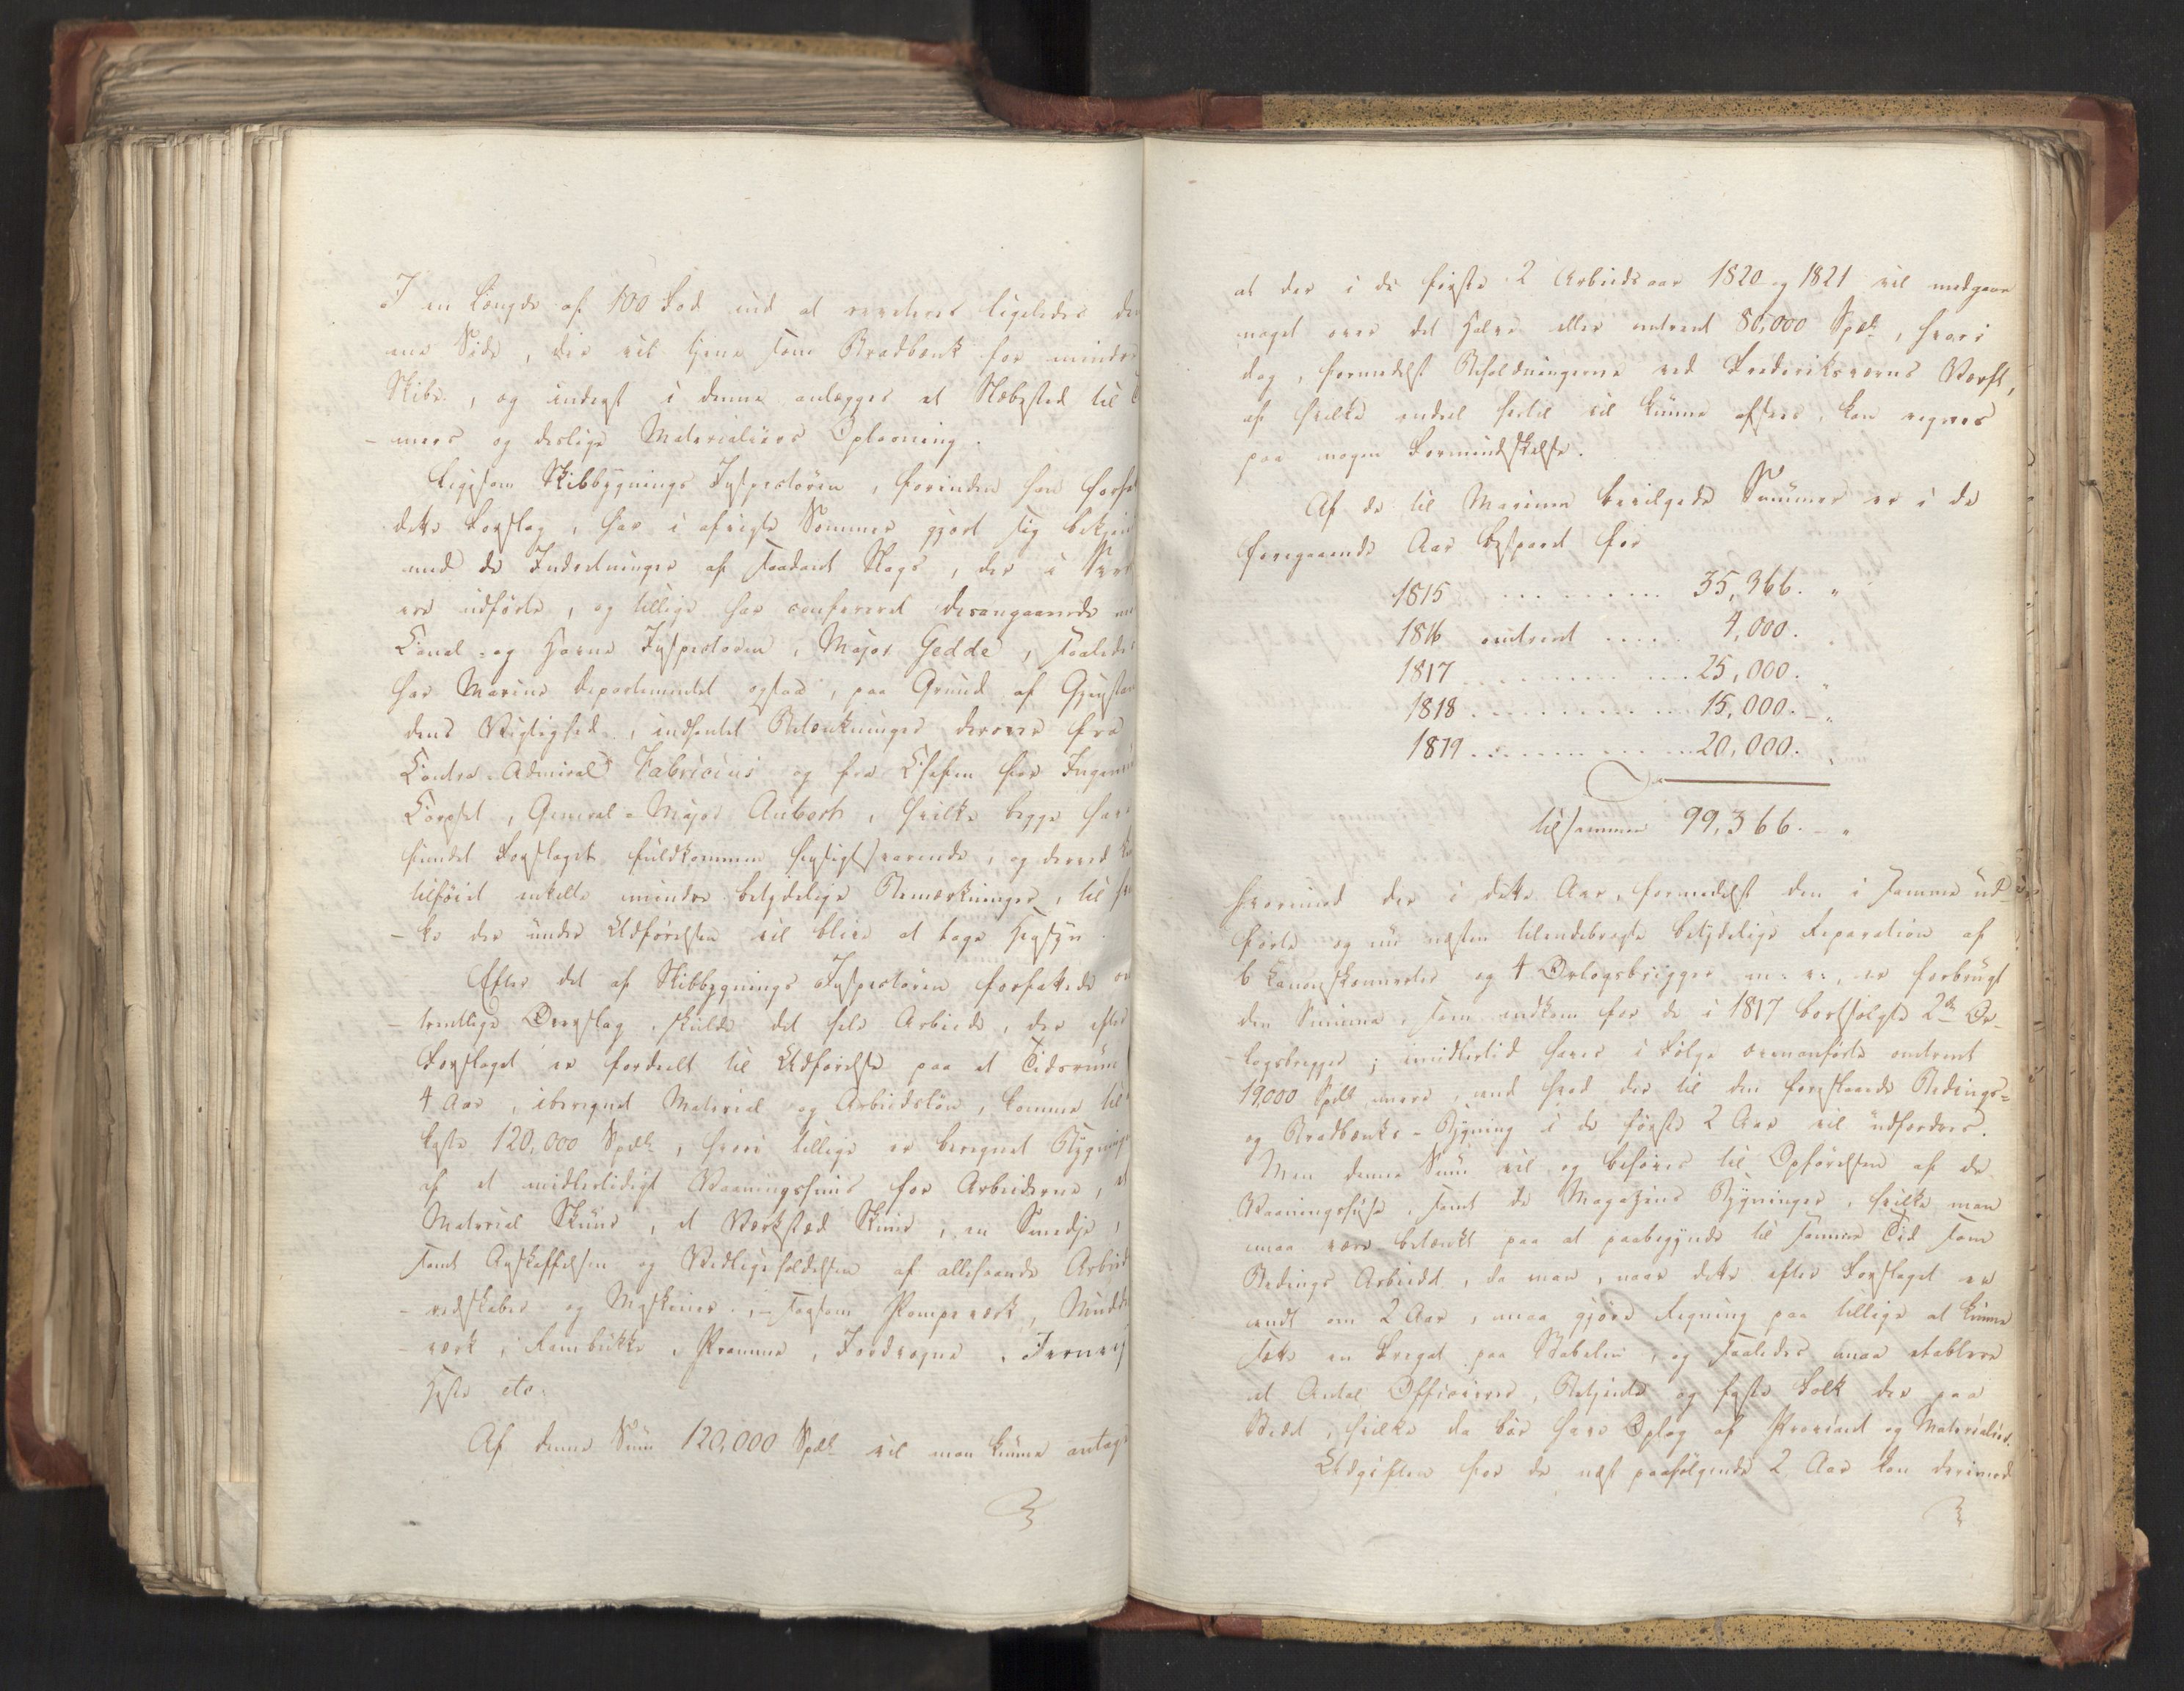 I en Længde af 100 Fod ind at reveteres ligeledes den
ene Side, der vil tjene som Bradbænk for mindre
Skibe, og inderst i denne anlægges et Slæbested til
mers og deslige Materialiers Oplagning.
Ligesom Skibbygnings Inspecteuren, forinden han forfat
dette Forslag, har i afvigte Sommer gjort sig bekjendt
med de Indretninger af saadant Slags, der i Sver
ere udførte, og tillige har confereret desangaaende med
Canal- og Havne Inspecteuren, Major Gedde, saaledes
har Marine Departementet ogsaa, paa Grund af Gjenstan
dens Vigtighed, indhentet Betænkninger derover fra
Contra-Admiral Fabricius og fra Chefen for Ingenieur
Corpset, General-Major Aubert, hvilke begge have
fundet Forslaget fuldkommen hensigtsvarende, og derved
tilføiet enkelte mindre betydelige Bemærkninger, til hvil
-ke der under Udførelsen vil blive at tage Hensyn.
Efter det af Skibbygnings Inspecteuren forfattede om
-trentlige Overslag, skulde det hele Arbeide, der efter
Forslaget er fordeelt til Udførelse paa et Tidsrum
4 Aar, iberegnet Material og Arbeidsløn, komme til
koste 120,000 Spdlr, hvori tillige er beregnet Bygning
af et midlertidigt Vaaningshuus for Arbeiderne, et
Material Skuur, et Værksted Skuur, en Smedje,
samt Anskaffelsen og Vedligeholdelsen af allehaande Arbeids
-redskaber og Maskiner, - saasom Pompeværk, Mudder
-værk, Rambukke, Pramme, Jordvogne, Jernvei
Heste etc.
Af denne Sum 120,000 Spdlr vil man kunne antage
at der i de første 2 Arbeidsaar 1820 og 1821 vil medgaae
noget over det Halve eller omtrent 80,000 Spdlr, hvori
dog, formedelst Beholdningerne ved Frederiksværns Værft,
af hvilke endeel hertil vil kunne afsees, kan regnes
paa nogen Formindskelse.
Af de til Marinen bevilgede Summer er i de
foregaaende Aar bespared for
1815 ......... 35,366. "
1816 omtrent ..... 4,000. "
1817 ......... 25,000. "
1818 ......... 15,000. - "
1819 ......... 20,000. "
tilsammen 99,366. - "
hvorimod der i dette Aar, formedelst den i samme ud-
førte og nu næsten tilendebragte betydelige Reparation af
6 Canonskonnerter og 4 Orlogsbrigger m: v:, er forbrugt
den Summa, som indkom for de i 1817 bortsolgte 2de Or-
logsbrigger; imidlertid haves i Følge ovenanførte omtrent
19,000 Spdlr mere, end hvad der til den forestaaende Bedings-
og Bradbænks-Bygning i de første 2 Aar vil udfordres.
Men denne Sum vil og behøves til Opførelsen af de
Vaaningshuse, samt de Magazins Bygninger, hvilke man
maa være betænkt paa at paabegynde til samme Tid som
Bedings Arbeidet, da man, naar dette efter Forslaget er
endt om 2 Aar, maa gjøre Regning paa tillige at kunne
sætte en Fregat paa Stabelen, og saaledes maa etablere
et Antal Officierer, Betjente og faste Folk der paa
Stedet, hvilke da bør have Oplag af Proviant og Materialier.
Udgiften for de næst paafølgende 2 Aar kan derimod